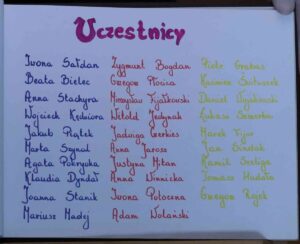 Uczestnicy
Iwona Sałdan
Beata Bielec
Anna Stachyra
Wojciech Kędziora
Jakub Piątek
Marta Szynal
Agata Pokrycka
Klaudia Dyndał
Joanna Stanik
Mariusz Madej
Zygmunt Bogdan
Grzegorz Płocica
Mirosław Fijałkowski
Witold Jedynak
Jadwiga Gerkies
Anna Jarosz
Justyna Mitan
Anna Winnicka
Iwona Potoczna
Adam Wolański
Piotr Grabas
Kazimierz
Daniel
Łukasz
Marek Fijor
Jan
Kamil Szeliga
Tomasz Hadała
Grzegorz Rojek